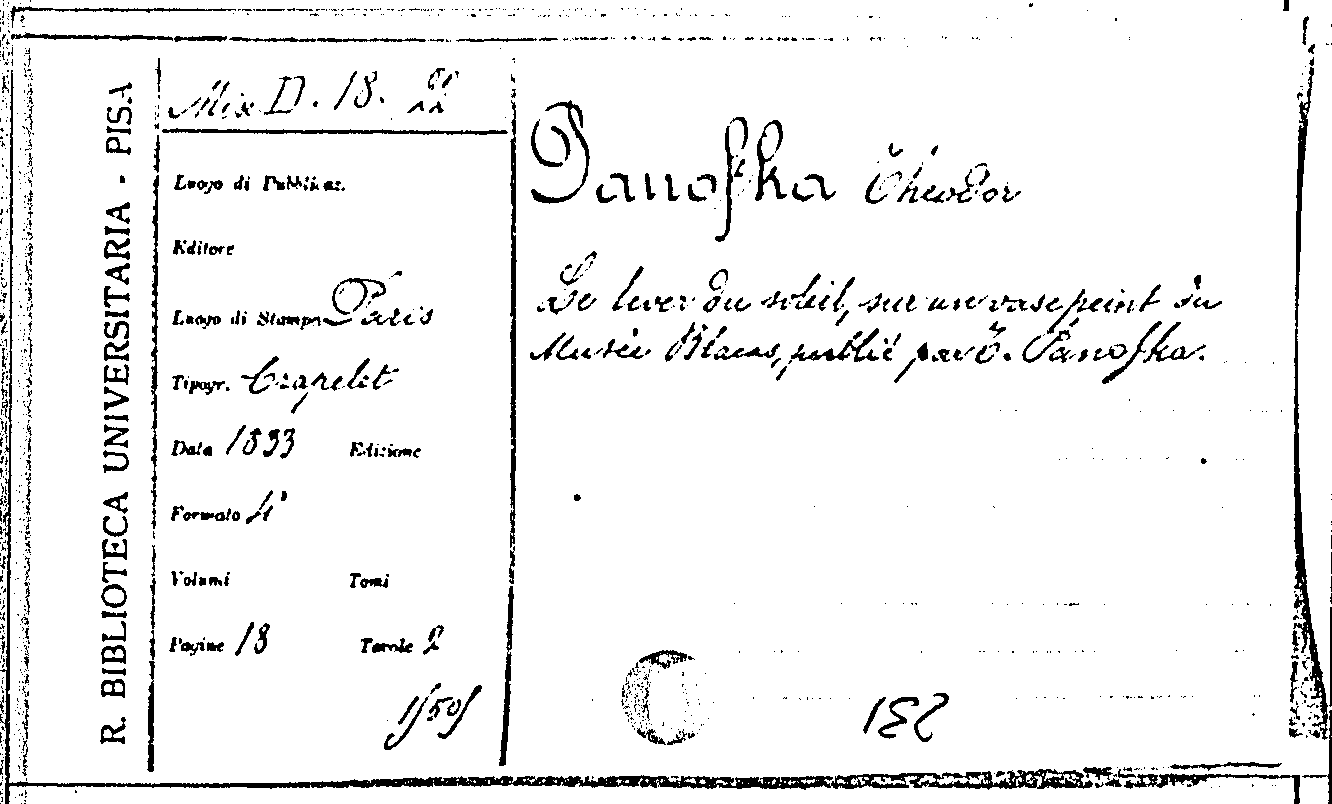 R. BIBLIOTECA UNIVERSITARIA - PISA
Mix D. 18. 22
Luogo di Pubblicaz.
Editore
Luogo di Stampa Paris
Tipogr. Crapelet
Data 1833 Edizione
Formato 4°
Volumi Tomi
Pagine 18 Tavole 2
Panofka Théodor
Le lever du soleil, sur un vase peint du
Musée Blacas, publié par T. Panofka.